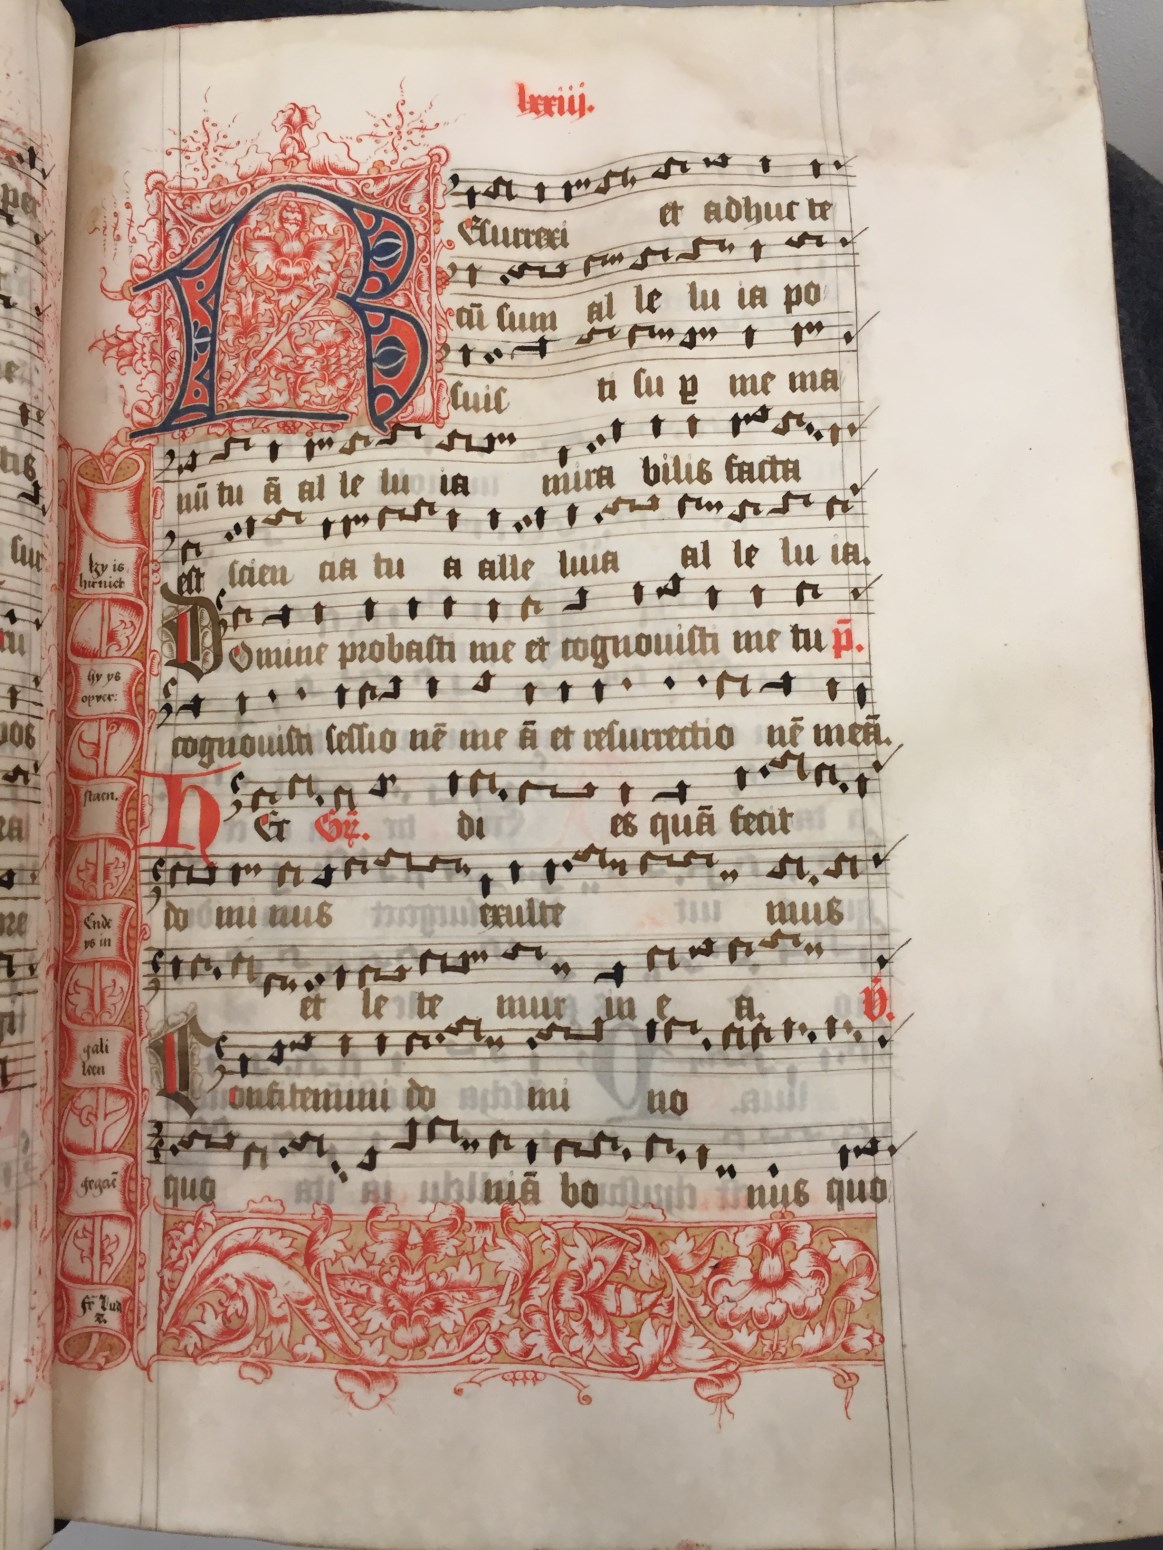 lxxiij.
REsurrexi et adhuc te
cū sum al le lu ia po
suis ti su ꝑ me ma
nū tu ā al le lu ia mira bilis facta
est scien cia tu a alle luia al le lu ia.
Domine probasti me et cognouisti me tu p̄.
cognouisti sessio nē me ā et resurrectio nē meā.
hEc Gr̄. di es quā fecit
do mi nus exulte mus
et le te mur in e a. v̄.
Confitemini do mi no
quo niā bo nus quo
hy is
hiet niet
hy ys
opver:
staen.
Ende
ys in
gali
leen
gegaē